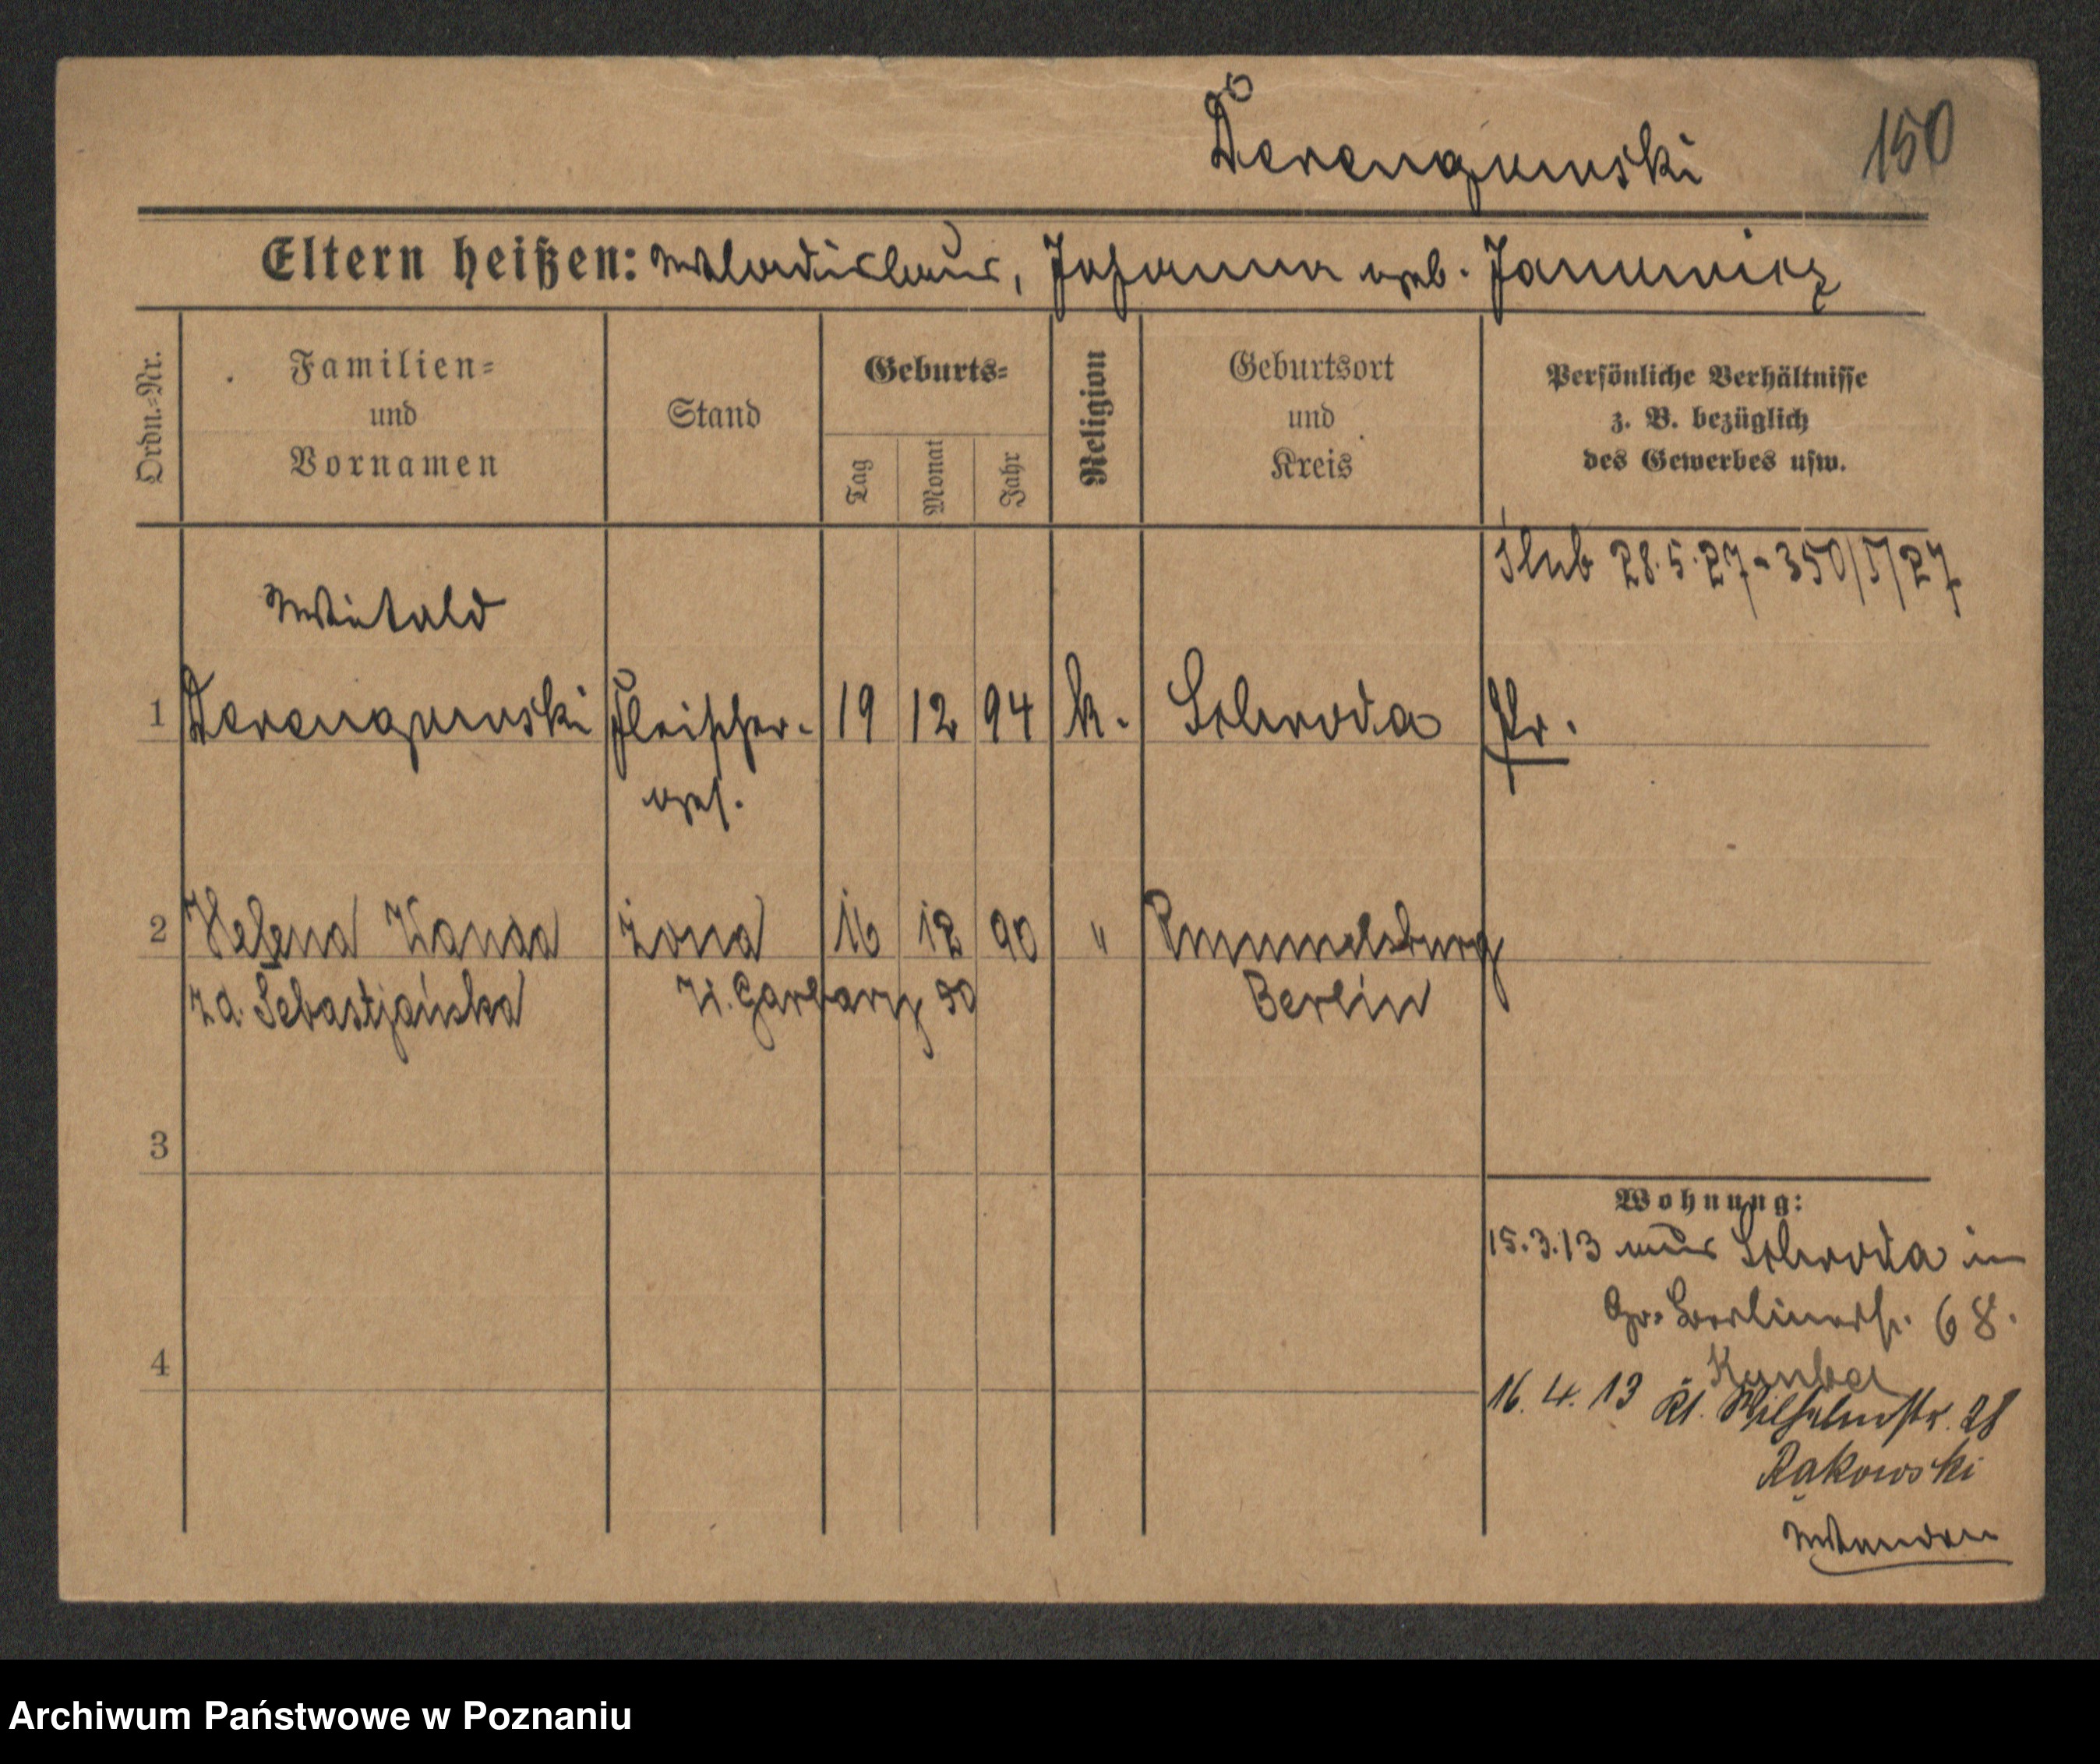 Derengowski
150
Eltern heißen: Wladislaus, Johanna geb. Janowicz
Ordn.=Nr.
Familien=
und
Vornamen
Stand
Geburts=
Tag
Monat
Jahr
Religion
Geburtsort
und
Kreis
Persönliche Verhältnisse
z. B. bezüglich
des Gewerbes usw.
ślub 28.5.27 - 350/5/27
Witold
1 Derengowski Fleischer- 19 12 94 k. Schroda Pr.
ges.
2 Helena Wanda żona 16 12 90 " Rummelsburg
zd. Sebastjańska W. Garbary 50 Berlin
3
Wohnung:
15.3.13 aus Schroda in
Gr. Berlinerstr. 68.
4
16. 4. 13 Kl. Wilhelmstr. 28
Rakowski
Archiwum Państwowe w Poznaniu